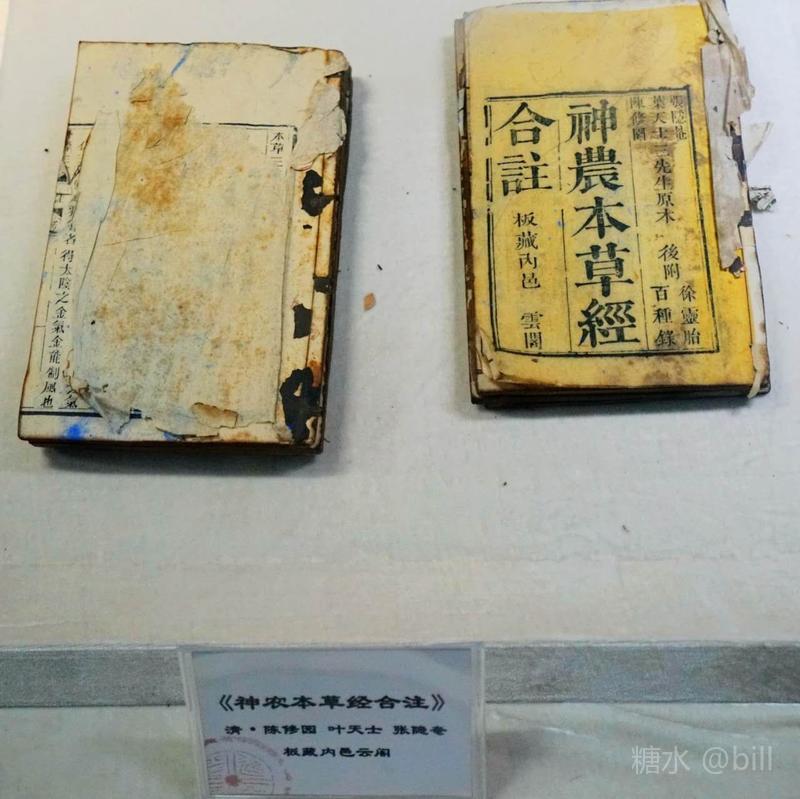 本草三
者得太陰之金氣金能制風也
張隱菴
葉天士三先生原本
陳修園
後附
徐靈胎
百種錄
神農本草經
合註
板藏內邑
雲閣
《神农本草经合注》
清·陈修园 叶天士 张隐菴
板藏内邑云阁
糖水 @bill